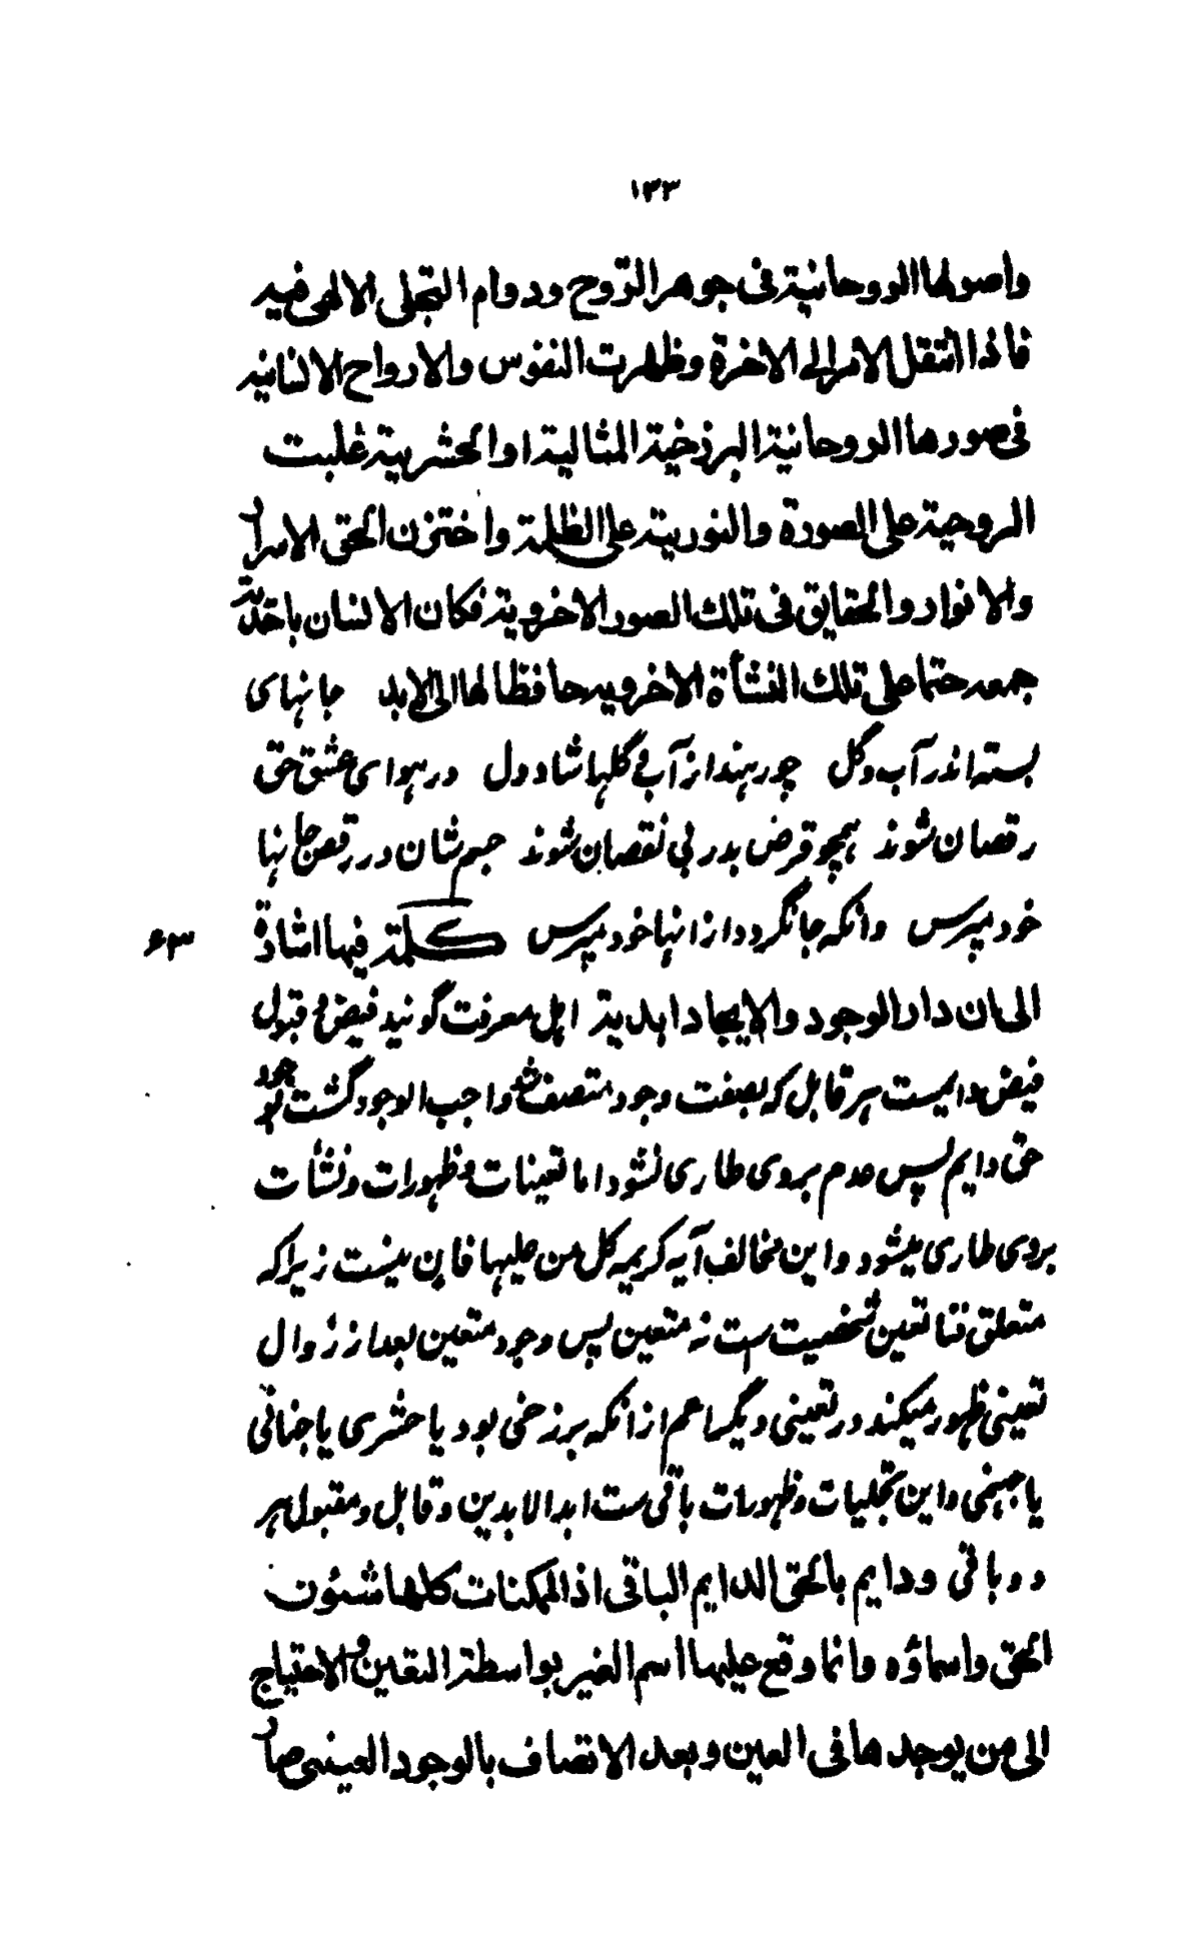 ١٣٣
واصولها الروحانیة فی جوهر الرّوح ودوام التجلی الالهی فیه
فاذا انتقل الامر الی الاخرة وظهرت النفوس والارواح الانسانیه
فی صورها الروحانیة البرزخیة المثالیة او الحشریة غلبت
الروحیة علی الصورة والنوریة علی الظلمة واختزن الحق الاسرار
والانوار والحقایق فی تلک الصور الاخرویة فکان الانسان باحدیّة
جمعه حتما علی تلک النشأة الاخرویه حافظا لها الی الابد جانهای
بسته اندر آب و گل چو رهند از آب و گلها شاد دل در هوای عشق حق
رقصان شوند همچو قرص بدر بی نقصان شوند جسم شان در رقص جانها
خود مپرس وانکه جانگردد از انها خود مپرس کلمة فیها اشارة
٦٣
الی ان دار الوجود والایجاد ابدیة اهل معرفت گویند فیض و قبول
فیض دایمست هر قابل که بصفت وجود متصف شد واجب الوجود گشت بوجود
حق دایم پس عدم بروی طاری نشود اما تعینات و ظهورات و نشأت
بروی طاری میشود و این مخالف آیه کریمه کل من علیها فان نیست زیرا که
متعلق فنا تعین شخصیت ست نه متعین پس وجود متعین بعد از زوال
تعینی ظهور میکند در تعینی دیگر اعم از انکه برزخی بود یا حشری یا جنانی
یا جهنمی و این تجلیات و ظهورات باقی ست ابد الابدین و قابل و مقبول هر
دو باقی و دایم بالحق الدایم الباقی اذ الممکنات کلها شئون
الحق واسماؤه وانما وقع علیها اسم الغیر بواسطة التعین والاحتیاج
الی من یوجدها فی العین وبعد الاتصاف بالوجود العینی صار